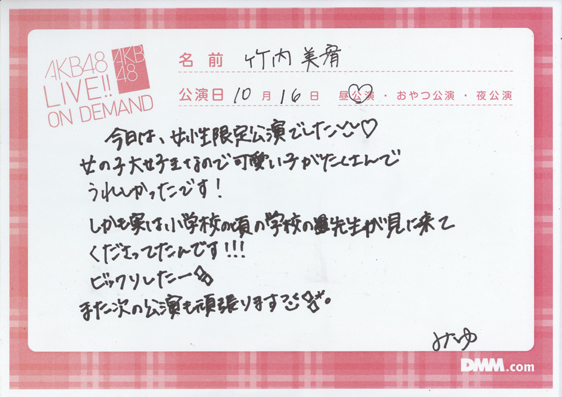 AKB48
LIVE!!
ON DEMAND
AKB
48
名前 竹内美宥
公演日 10月16日 昼公演・おやつ公演・夜公演
今日は、女性限定公演でした♡
女の子大好きなので可愛い子がたくさんで
うれしかったです!
しかも実は小学校の頃の学校の先生が見に来て
くださってたんです!!!
ビックリしたー
また次の公演も頑張ります。
みゆ
DMM.com